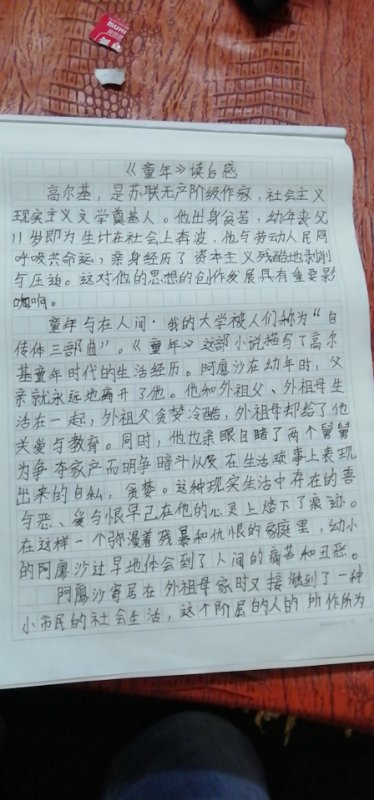 《童年》读后感
高尔基，是苏联无产阶级作家，社会主义
现实主义文学奠基人。他出身贫苦、幼年丧父
11岁即为生计在社会上奔波，他与劳动人民同
呼吸共命运，亲身经历了资本主义残酷地剥削
与压迫。这对他的思想的创作发展具有重要影
响。
童年与在人间·我的大学被人们称为“自
传体三部曲”。《童年》这部小说描写了高尔
基童年时代的生活经历。阿廖沙在幼年时，父
亲就永远地离开了他。他和外祖父、外祖母生
活在一起，外祖父贪婪冷酷，外祖母却给了他
关爱与教育。同时，他也亲眼目睹了两个舅舅
为争夺家产而明争暗斗以及在生活琐事上表现
出来的自私，贪婪。这种现实生活中存在的善
与恶、爱与恨早已在他的心灵上烙下了痕迹。
在这样一个弥漫着残暴和仇恨的家庭里，幼小
的阿廖沙过早地体会到了人间的痛苦和丑恶。
阿廖沙寄居在外祖母家时又接触到了一种
小市民的社会生活，这个阶层的人的所作所为